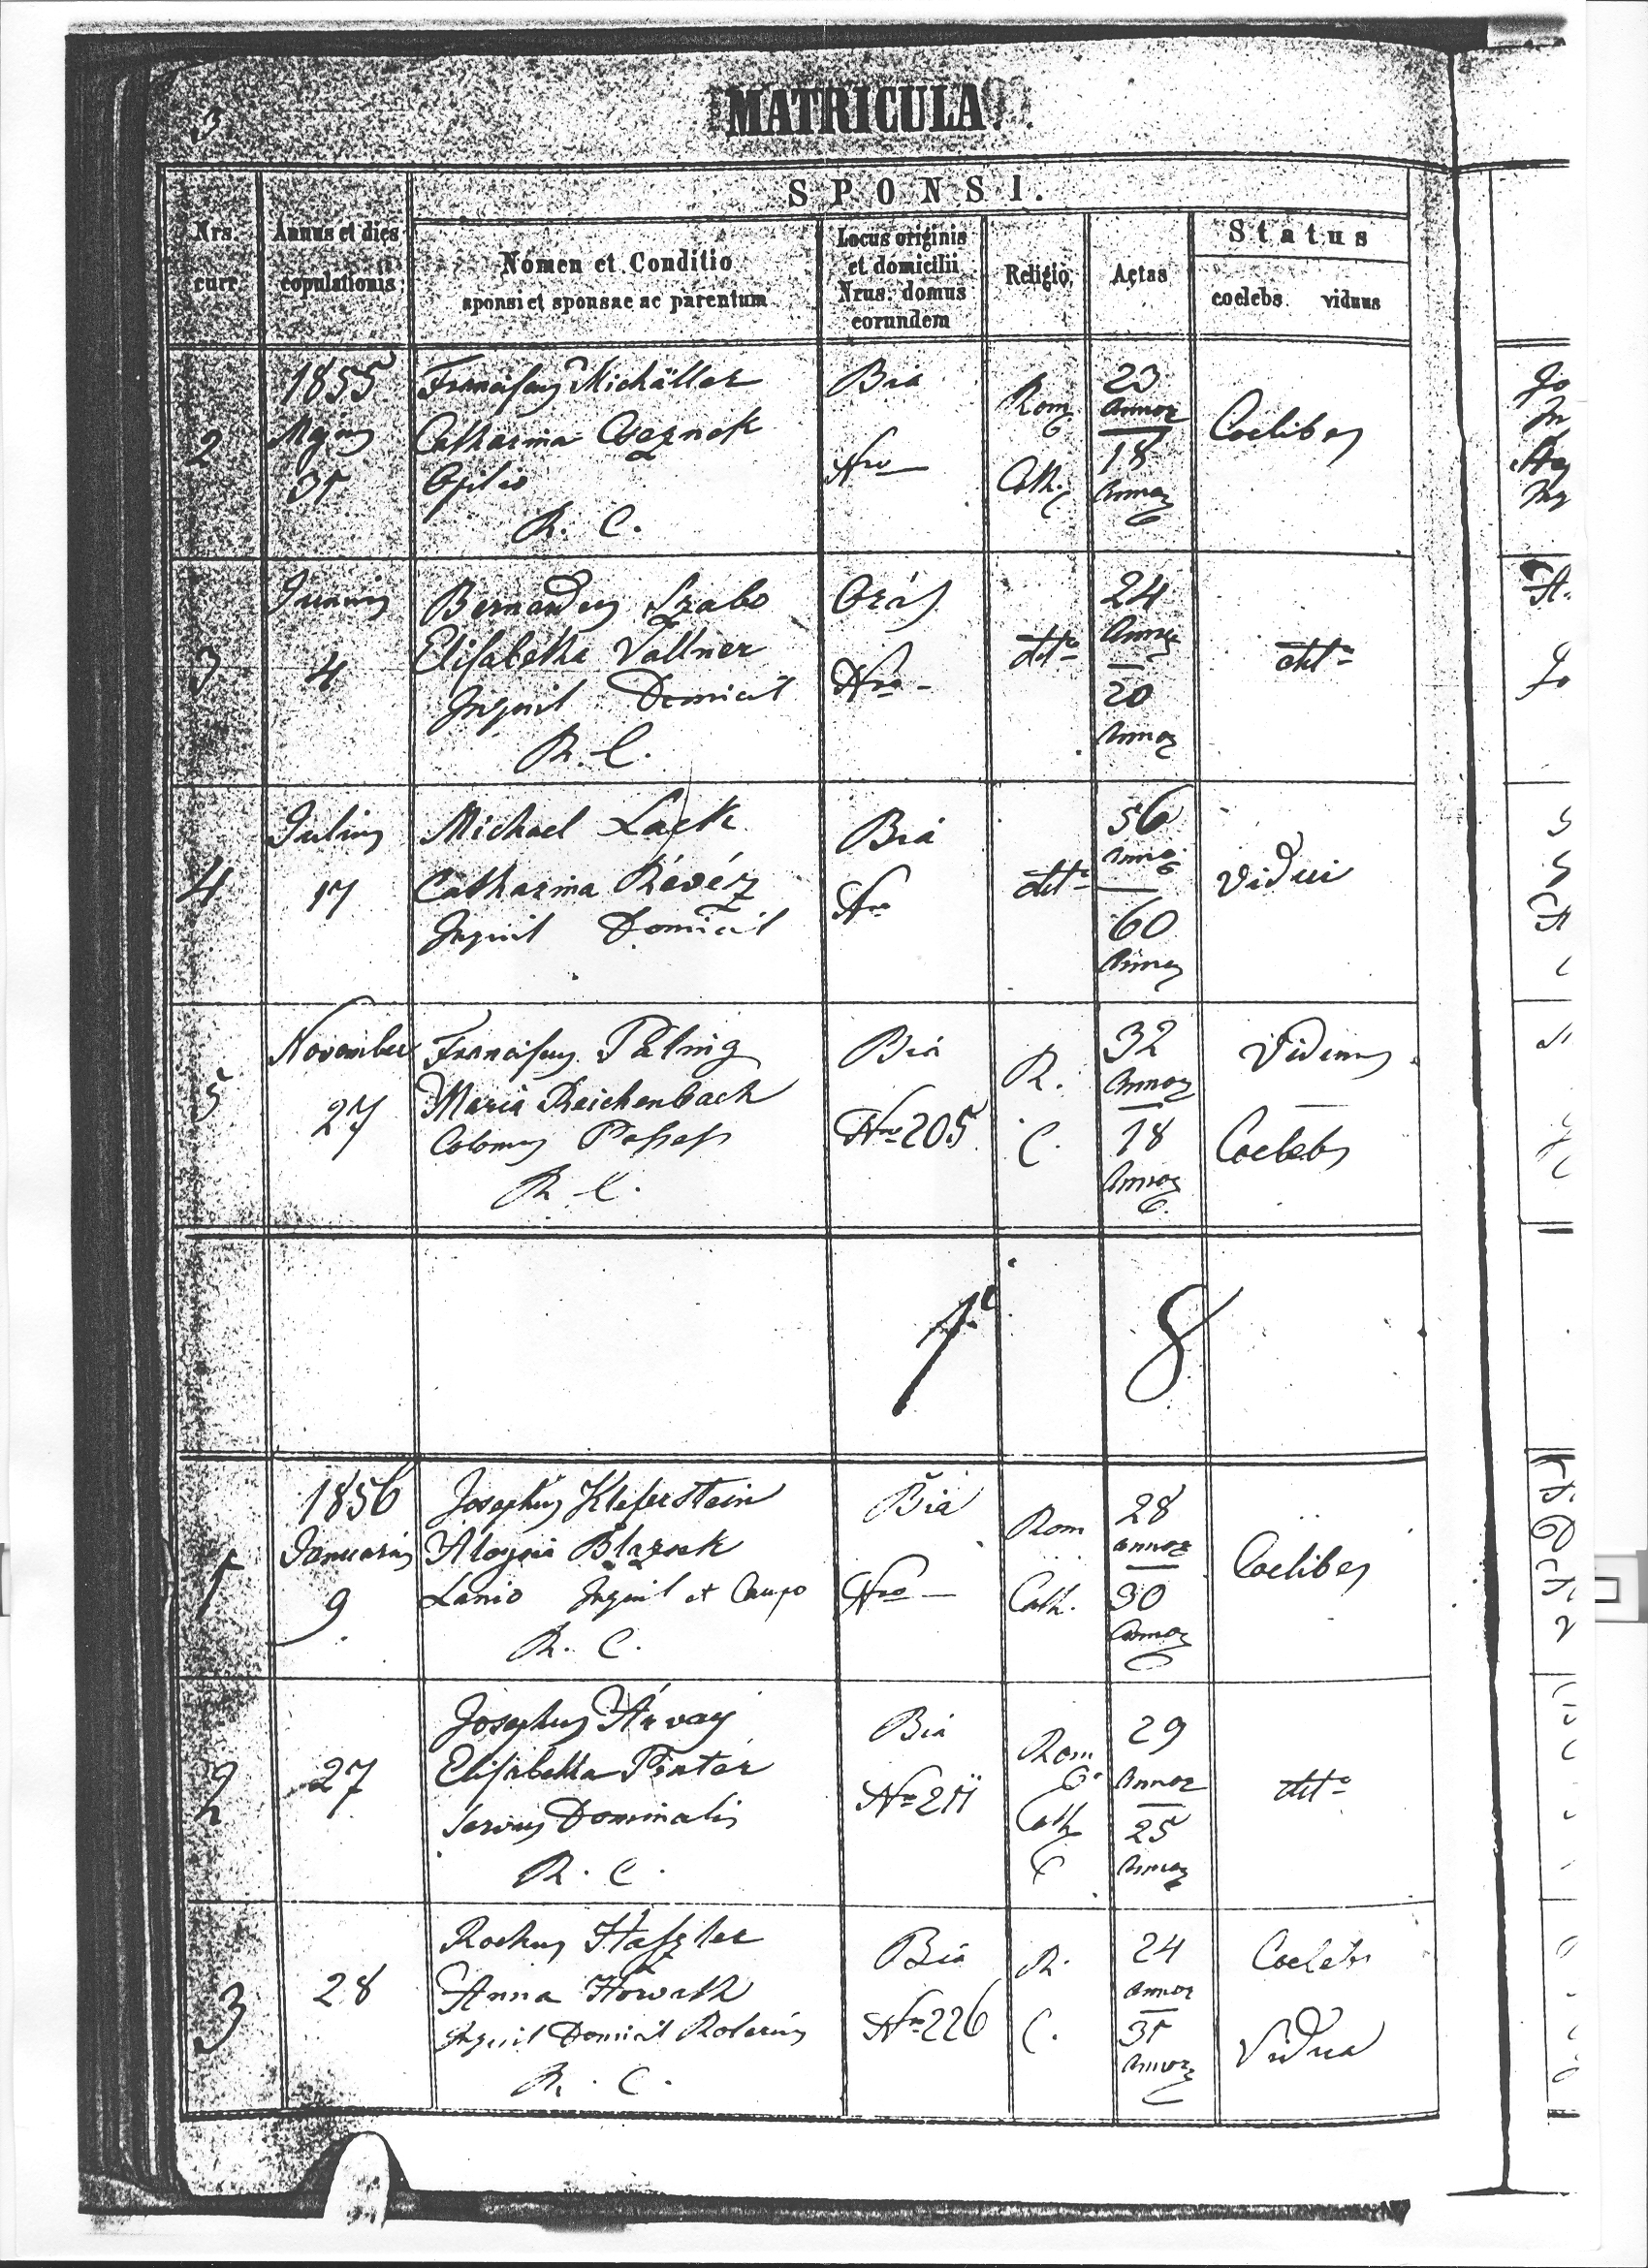 3
MATRICULA
SPONSI.
Nrs. curr.
Annus et dies copulationis
Nomen et Conditio
sponsi et sponsae ac parentum
Locus originis
et domicilii
Nrus. domus
eorundem
Religio
Aetas
Status
coelebs viduus
2
1855
Majus
31
Franciscus Michäller
Catharina
Opilio
R. C.
Bia
Nro —
Rom
Cath.
23
Annor
18
Annor
Coelibes
3
Junius
4
Bernardus Szabo
Elisabetha Vallner
Inquil Domicil
R. C.
Nro —
dtto
24
Annor
20
Annor
dtto
4
Julius
17
Michael Lack
Catharina Révész
Inquil Domicil
Biá
Nro
dtto
56
Annor
60
Annor
Vidui
5
November
27
Franciscus Páling
Maria Reichenbach
Colonus
R. C.
Biá
Nro 205
R.
C.
32
Annor
18
Annor
Viduus
Coelebs
8
1
1856
Januarius
9
Josephus Kleferstein
Aloysia Blazsek
Lanio Inquil et Caupo
R. C.
Bia
Nro —
Rom
Cath.
28
annor
30
Annor
Coelibes
2
27
Josephus Árvay
Elisabetha Pintér
Servus Dominalis
R. C.
Biá
Nro 211
Rom
Cath
29
Annor
25
Annor
dtto
3
28
Rochus Haszler
Anna Horvath
Inquil Domicil Rotarius
R. C.
Biá
Nro 226
R.
C.
24
Annor
31
Annor
Coelebs
Vidua